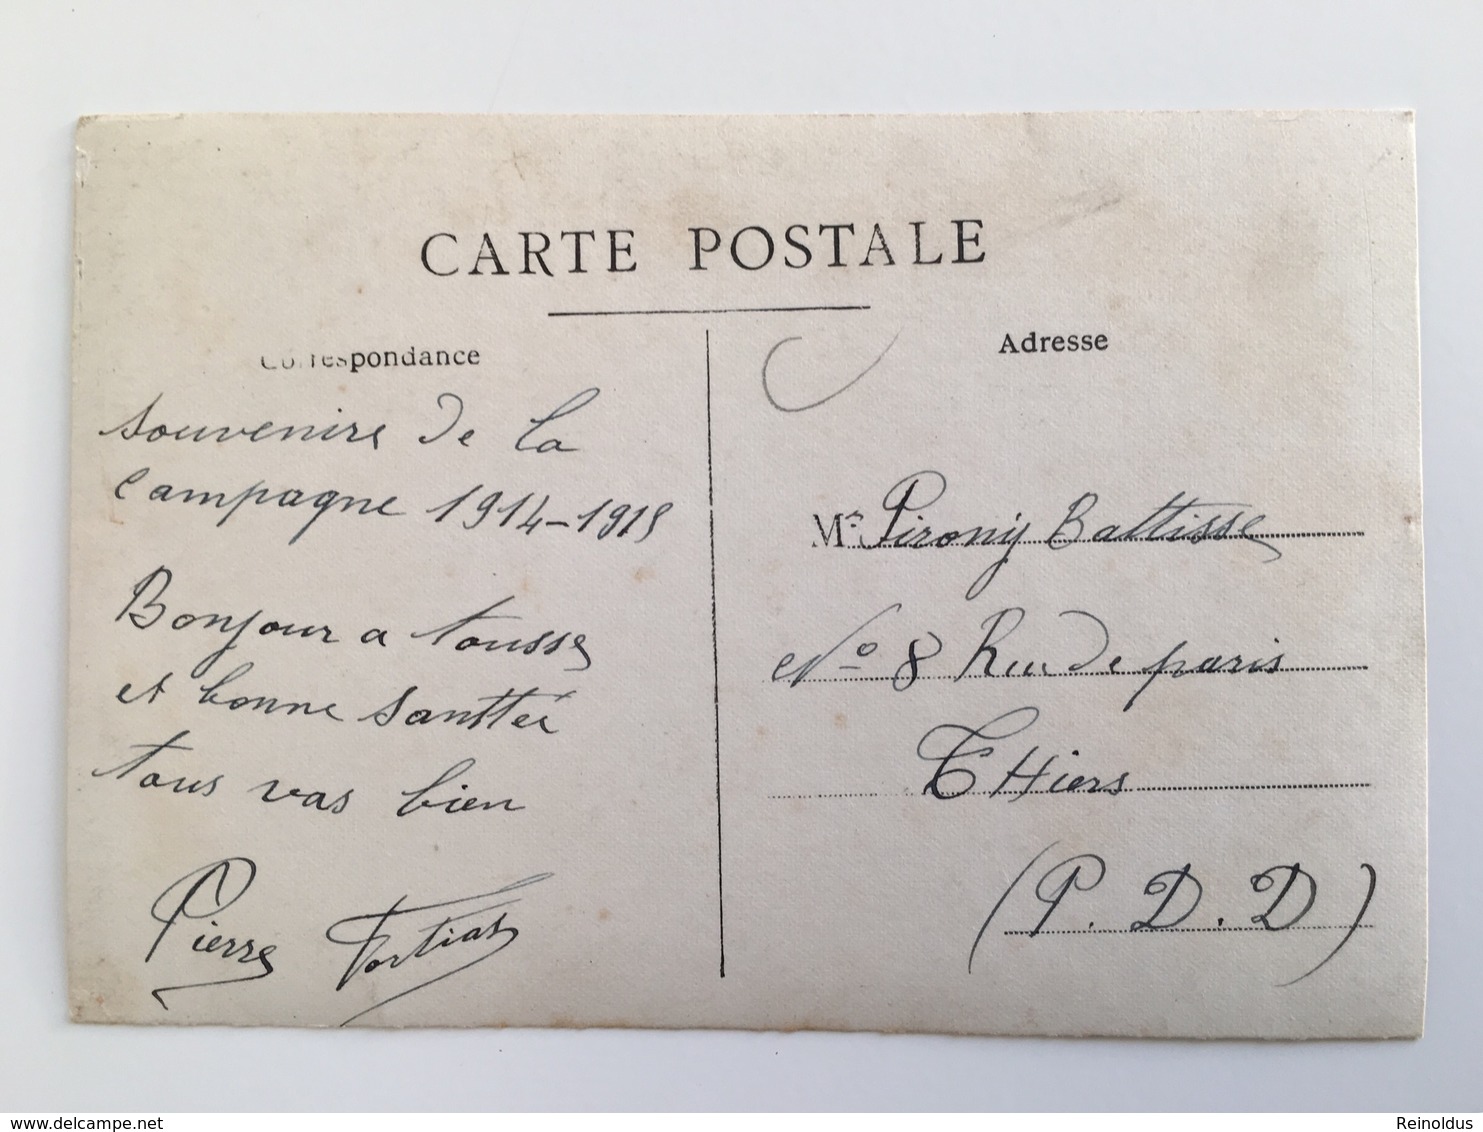 CARTE POSTALE
Correspondance
souvenire de la
campagne 1914-1915
Bonjour a tousse
et bonne santtée
tous vas bien
Pierre Fortias
Adresse
Mr Pirony Battisse
No 8 Rue de paris
THiers
(P. D. D)
delcampe.net
Reinoldus